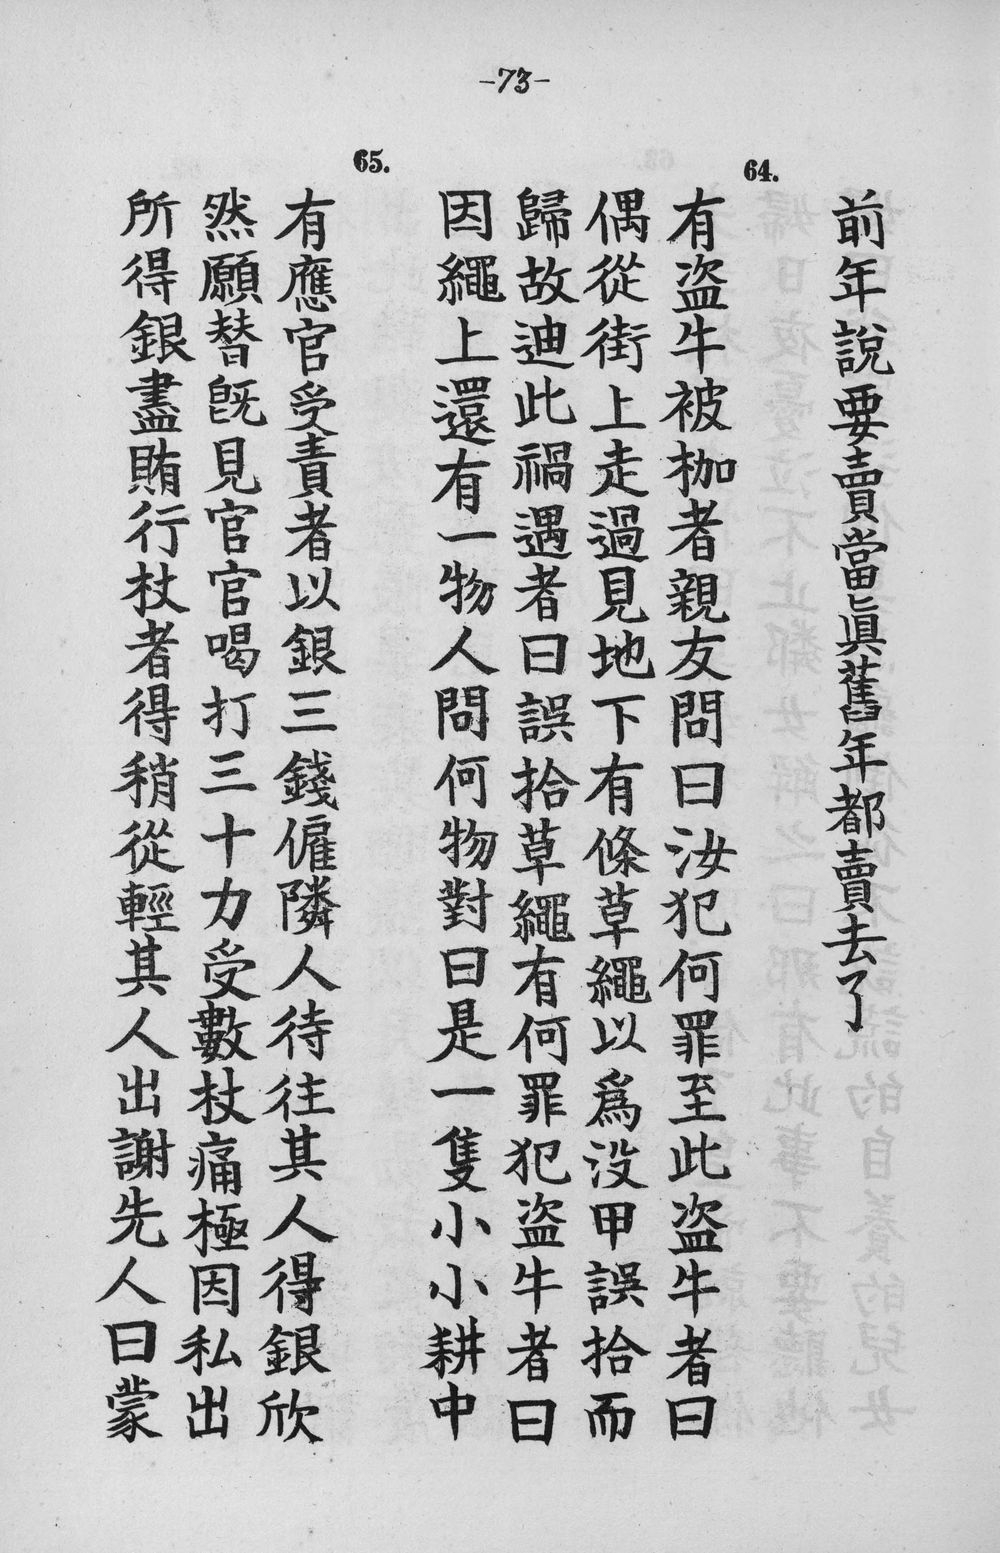 -73-
前年說要賣當眞舊年都賣去了
64.
有盜牛被枷者親友問曰汝犯何罪至此盜牛者曰
偶從街上走過見地下有條草繩以爲没甲誤拾而
歸故迪此禍遇者曰誤拾草繩有何罪犯盜牛者曰
因繩上還有一物人問何物對曰是一隻小小耕中
65.
有應官受責者以銀三錢僱隣人待往其人得銀欣
然願替旣見官官喝打三十力受數杖痛極因私出
所得銀盡賄行杖者得稍從輕其人出謝先人曰蒙